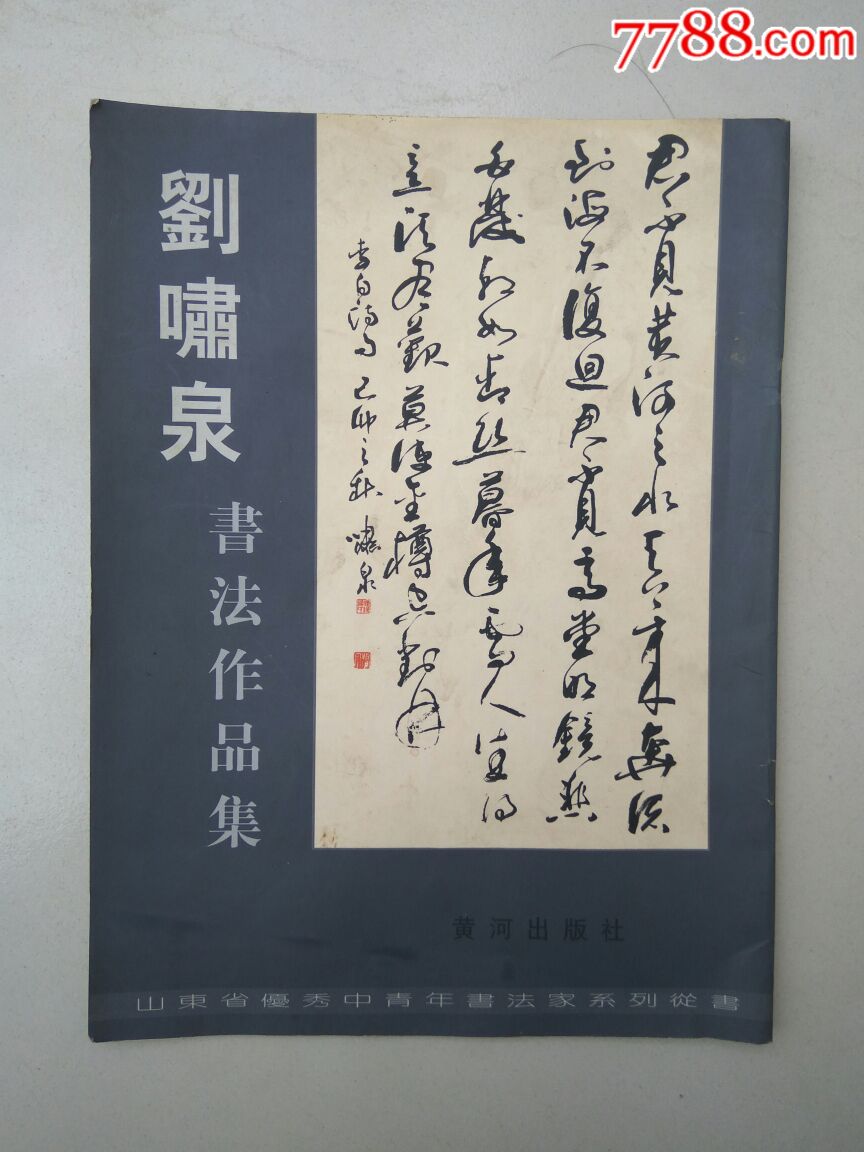 7788.com
劉嘯泉
書法作品集
君不見黄河之水天上来奔流
到海不復迴君不見高堂明鏡悲
白髮朝如青丝暮成雪人生得
意须尽歡莫使金樽空對月
李白詩句 己卯之秋 嘯泉
黄河出版社
山東省優秀中青年書法家系列從書